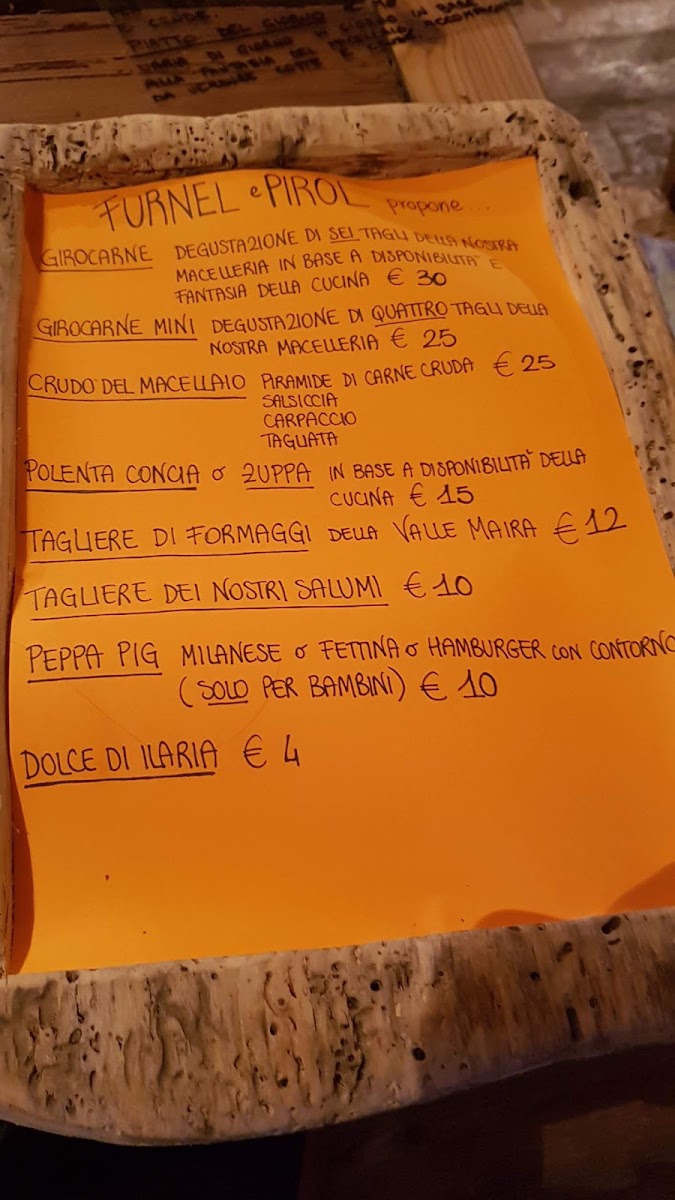 CRUDE
PIATTO DEL GIORNO
ALLA FANTASIA DEL
FURNEL e PIROL propone...
GIROCARNE DEGUSTAZIONE DI SEI TAGLI DELLA NOSTRA
MACELLERIA IN BASE A DISPONIBILITA' E
FANTASIA DELLA CUCINA € 30
GIROCARNE MINI DEGUSTAZIONE DI QUATTRO TAGLI DELLA
NOSTRA MACELLERIA € 25
CRUDO DEL MACELLAIO PIRAMIDE DI CARNE CRUDA € 25
SALSICCIA
CARPACCIO
TAGLIATA
POLENTA CONCIA O ZUPPA IN BASE A DISPONIBILITA' DELLA
CUCINA € 15
TAGLIERE DI FORMAGGI DELLA VALLE MAIRA € 12
TAGLIERE DEI NOSTRI SALUMI € 10
PEPPA PIG MILANESE O FETTINA O HAMBURGER CON CONTORNO
(SOLO PER BAMBINI) € 10
DOLCE DI ILARIA € 4